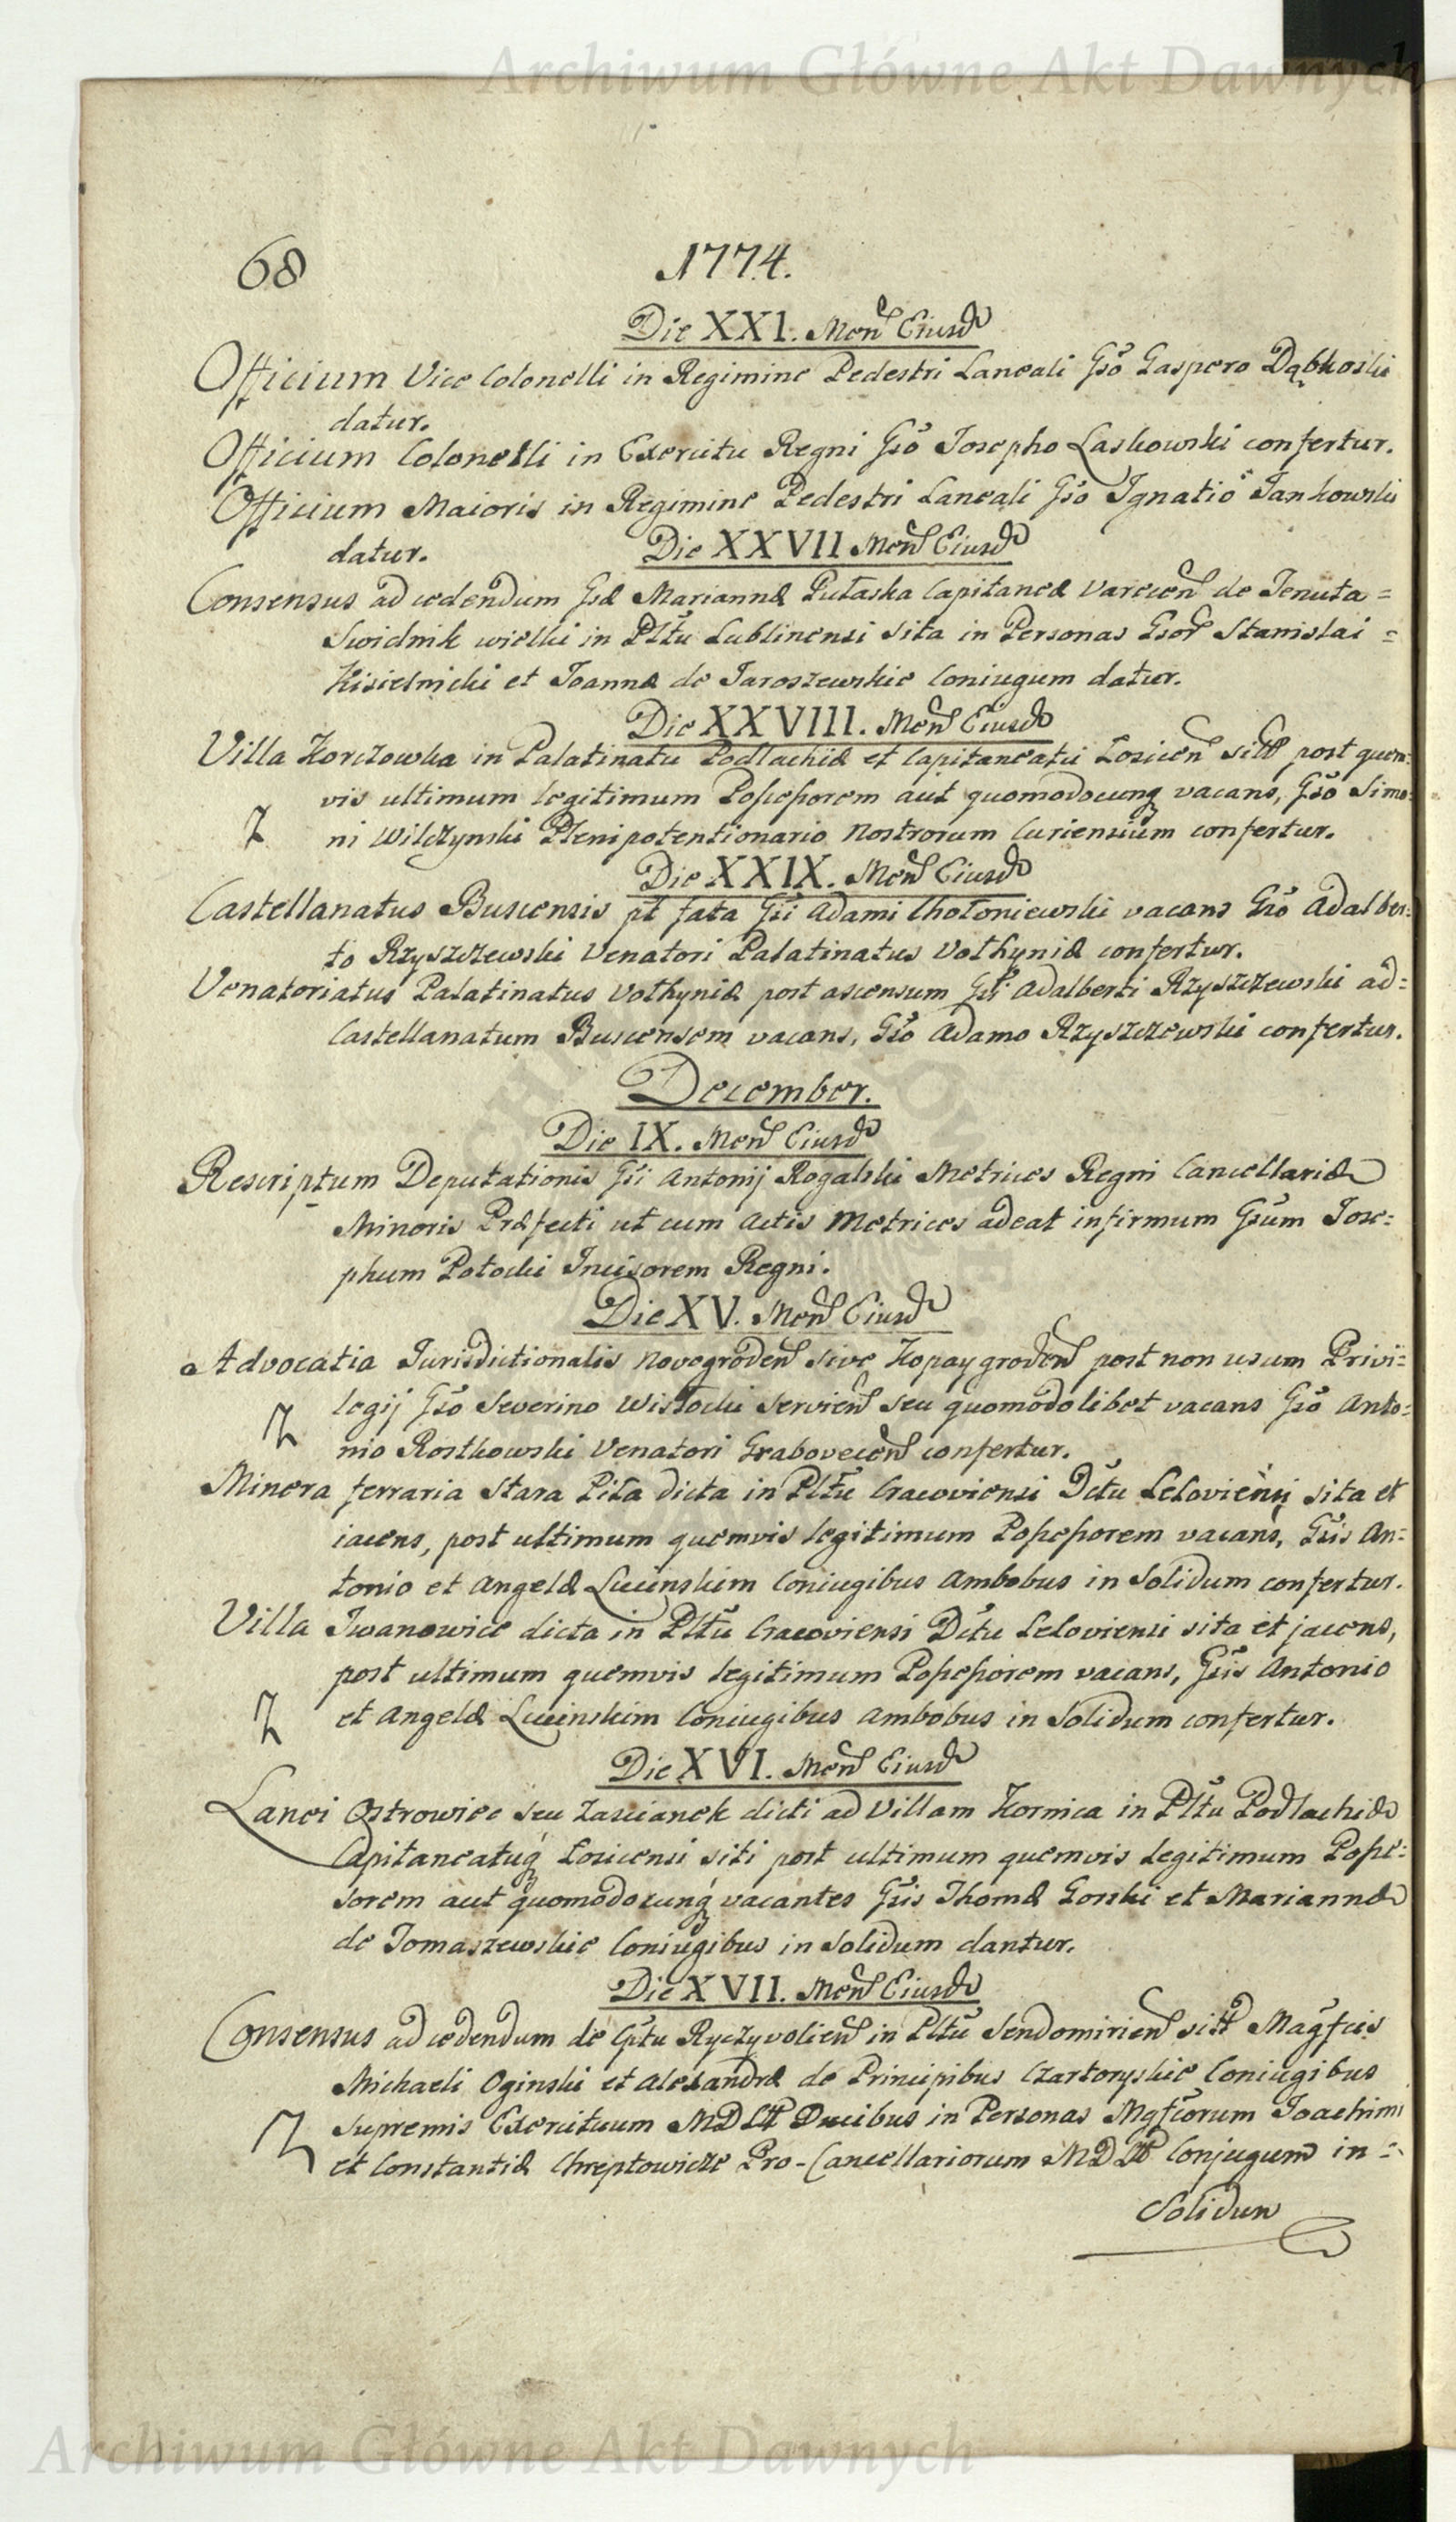 Archiwum Główne Akt Dawnych
68
1774.
Die XXI. Men̄ Eiusd
Officium Vice Colonelli in Regimine Pedestri Laneali Gsō Gaspero Dąbkoski
datur.
Officium Colonelli in Exercitu Regni Gsō Josepho Laskowski confertur.
Officium Maioris in Regimine Pedestri Laneali Gso Ignatio Jankowski
datur.
Die XXVII Men̄ Eiusd
Consensus ad cedendum Gsæ Mariannæ Pułaska Capitaneæ Varecen̄ de Tenuta =
Swidnik wielki in Pltū Lublinensi sita in Personas Gsor̄ Stanislai =
Kisielnicki et Joannæ de Jaroszewskie Coniugum datur.
Die XXVIII. Men̄ Eiusd
Villa Korczowka in Palatinatu Podlachiæ et Capitaneatu Losicen̄ sitt post quem=
vis ultimum legitimum Possessorem aut quomodocunq vacans, Gsō Simo=
Z ni Wilczynski Plenipotentionario Nostrorum Curiensium confertur.
Die XXIX. Men̄ Eiusd
Castellanatus Buscensis pt fata Gsi Adami Chołoniewski vacans Gsō Adalber=
to Rzyszczewski Venatori Palatinatus Volhyniæ confertur.
Venatoriatus Palatinatus Volhyniæ post ascensum Gsi Adalberti Rzyszczewski ad=
Castellanatum Buscensem vacans, Gsō Adamo Rzyszczewski confertur.
December.
Die IX. Men̄ Eiusd
Rescriptum Deputationis Gsi Antonij Rogalski Metrices Regni Cancellariæ
Minoris Præfecti ut cum Actis Metrices adeat infirmum Gsum Jose=
phum Potocki Incisorem Regni.
Die XV. Men̄ Eiusd
Advocatia Jurisdictionalis Novogroden̄ sive Kopaygroden̄ post non usum Privi=
legij Gsō Severino Wisłocki Servien̄ seu quomodolibet vacans Gsō Anto=
Z nio Rostkowski Venatori Grabovecen̄ confertur.
Minera ferraria Stara Piła dicta in Pltū Cracoviensi Dctu Leloviensi sita et
iacens, post ultimum quemvis legitimum Possessorem vacans, Gsis An=
tonio et Angelæ Lucinskim Coniugibus Ambobus in Solidum confertur.
Villa Iwanowice dicta in Pltū Cracoviensi Dctu Leloviensi sita et jacens,
post ultimum quemvis legitimum Possessorem vacans, Gsis Antonio
Z et Angelæ Lucinskim Coniugibus Ambobus in Solidum confertur.
Die XVI. Men̄ Eiusd
Lanei Ostrowiec seu Zascianek dicti ad Villam Kornica in Pltū Podlachiæ
Capitaneatuq Losicensi siti post ultimum quemvis legitimum Posse=
sorem aut quomodocunq vacantes Gsis Thomæ Gorski et Mariannæ
de Tomaszewskie Coniugibus in Solidum dantur.
Die XVII. Men̄ Eiusd
Consensus ad cedendum de Cptu Ryczyvolien̄ in Pltū Sendomirien̄ sitt Magfcis
Michaeli Oginski et Alexandræ de Principibus Czartoryskie Coniugibus
Supremis Exercituum MDLtt Ducibus in Personas Mgfcorum Joachimi
Z et Constantiæ Chreptowicze Pro-Cancellariorum MDLtt Conjugum in =
Solidum
Archiwum Główne Akt Dawnych